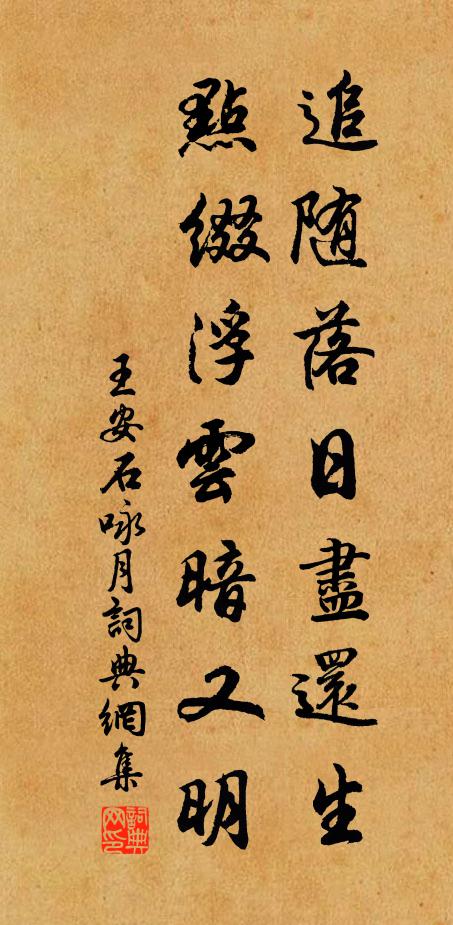 追随落日盡還生
點綴浮雲暗又明
王安石咏月詞典網集
詞典網印